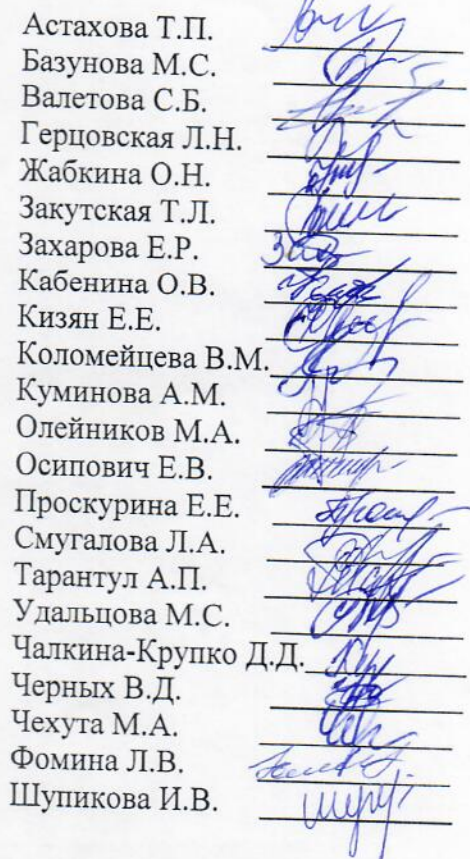 Астахова Т.П.
Базунова М.С.
Валетова С.Б.
Герцовская Л.Н.
Жабкина О.Н.
Закутская Т.Л.
Захарова Е.Р.
Кабенина О.В.
Кизян Е.Е.
Коломейцева В.М.
Куминова А.М.
Олейников М.А.
Осипович Е.В.
Проскурина Е.Е.
Смугалова Л.А.
Тарантул А.П.
Удальцова М.С.
Чалкина-Крупко Д.Д.
Черных В.Д.
Чехута М.А.
Фомина Л.В.
Шупикова И.В.